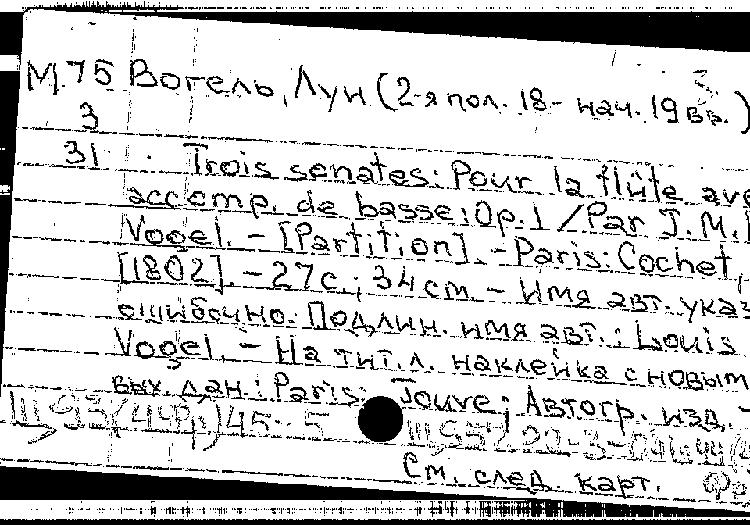 М.75 Вогель, Луи (2-я пол. 18- нач. 19 вв.)
3
31 Trois senates: Pour la flûte ave
accomp. de basse: Op. 1 / Par J. M.
Vogel. - [Partition]. - Paris: Cochet,
[1802]. - 27 с.; 34 см. - Имя авт. указ
ошибочно. Подлин. имя авт.: Louis
Vogel. - На тит. л. наклейка с новым
вых. дан.: Paris: Jouve; Автогр. изд. -
Ш 93(4Фр)45-5
См. след. карт.